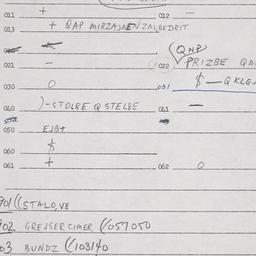 011 + 012 –
013 + QAP MIRZAJNENZALBEDRIT
021 – 022 QNP PRIZBE QA
030 0 031 $ – Q KLE
040 )-STOLBE Q STELBE 041 –
050 EJB+
060 $
061 + 062 0
901 ((STALO,VE
902 GREJSER CIMER ((057050
03 BUNDZ ((103140